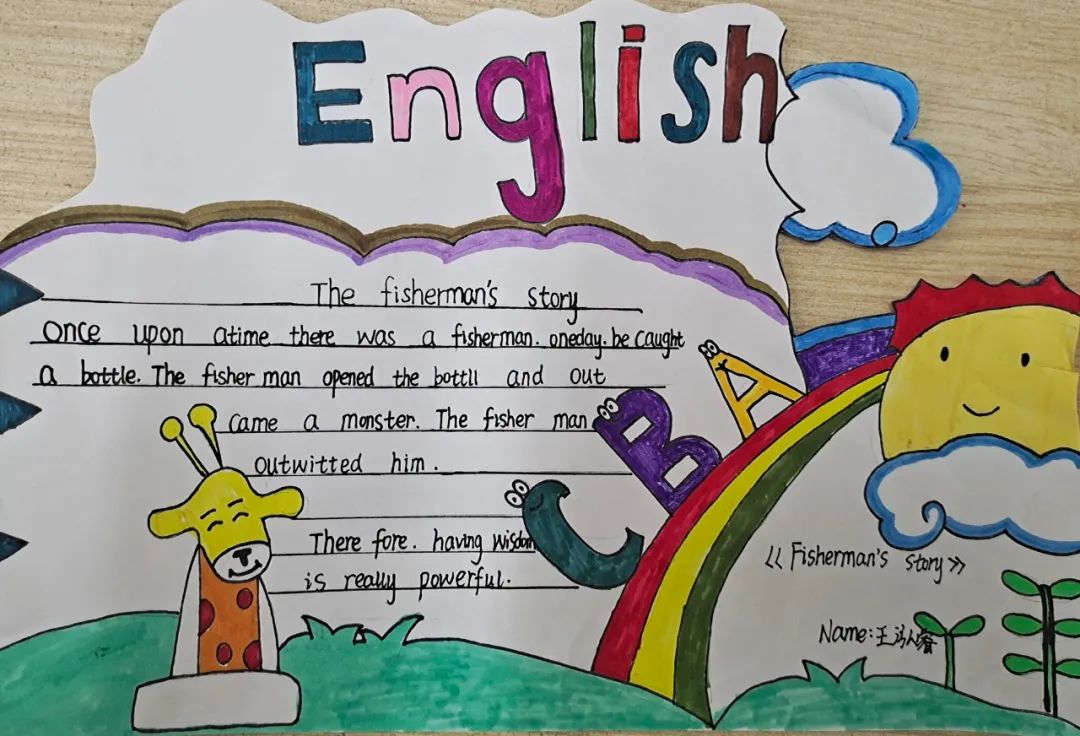 English
The fisherman's story
Once upon atime there was a fisherman. oneday. be caught
a bottle. The fisher man opened the bottll and out
came a monster. The fisher man
outwitted him.
There fore. having wisdom
is really powerful.
C B A
《Fisherman's story》
Name: 王